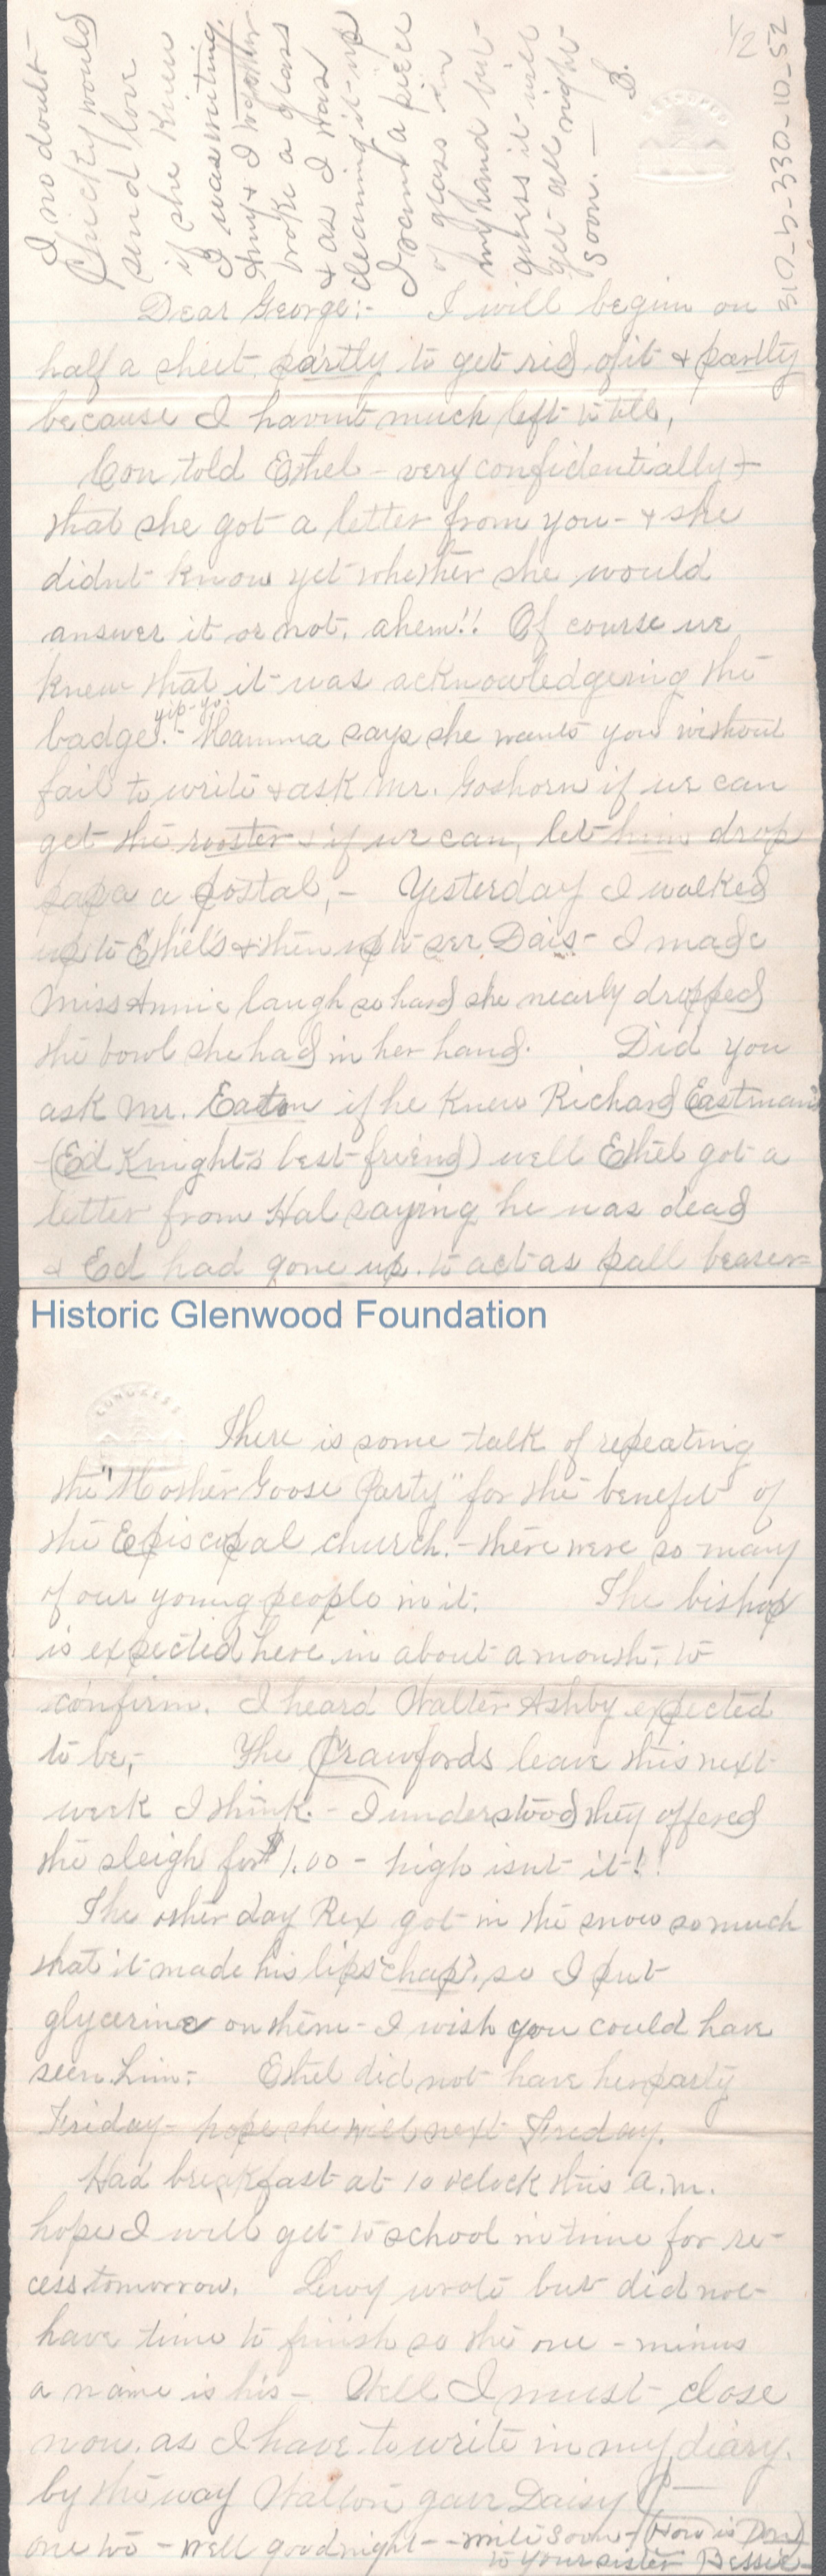 I no doubt
Chicky would
send love
if she knew
I was writing.
Amy & I together
broke a glass
& as I was
cleaning it up
I ran a piece
of glass in
my hand but
guess it will
get all right
soon. —
B.
1/2
310-5-330-10-52
Dear George:- I will begin on
half a sheet partly to get rid of it & partly
because I havn't much left to tell,
Con told Ethel - very confidentially -
that she got a letter from you - & she
didnt know yet whether she would
answer it or not. ahem!! Of course we
knew that it was acknowledgering the
yip-yo.
badge. - Mamma says she wants you without
fail to write & ask Mr. Goshorn if we can
get the rooster & if we can, let him drop
papa a postal, - Yesterday I walked
up to Ethel's & then up to see Dais - I made
Miss Annie laugh so hard she nearly dropped
the bowl she had in her hand. Did you
ask Mr. Eaton if he knew Richard Eastman
- (Ed Knight's best friend) well Ethel got a
letter from Hal saying he was dead
& Ed had gone up to act as pall bearer -
Historic Glenwood Foundation
CONGRESS
There is some talk of repeating
the "Mother Goose Party" for the benefit of
the Episcopal church. - there were so many
of our young people in it. The bishop
is expected here in about a month, to
confirm. I heard Walter Ashby expected
to be, - The Crawfords leave this next
week I think. - I understood they offered
the sleigh for $1.00 - high isnt it!!
The other day Rex got in the snow so much
that it made his lips "chap", so I put
glycerine on them - I wish you could have
seen him. - Ethel did not have her party
Friday - hope she will next Friday.
Had breakfast at 10 oclock this a.m.
hope I will get to school in time for re-
cess tomorrow. Levy wrote but did not
have time to finish so the one - minus
a name is his - Well I must close
now, as I have to write in my diary.
by the way Walton gave Daisy
one too - well goodnight - - write soon - (How is Don)
to your sister Bessie -